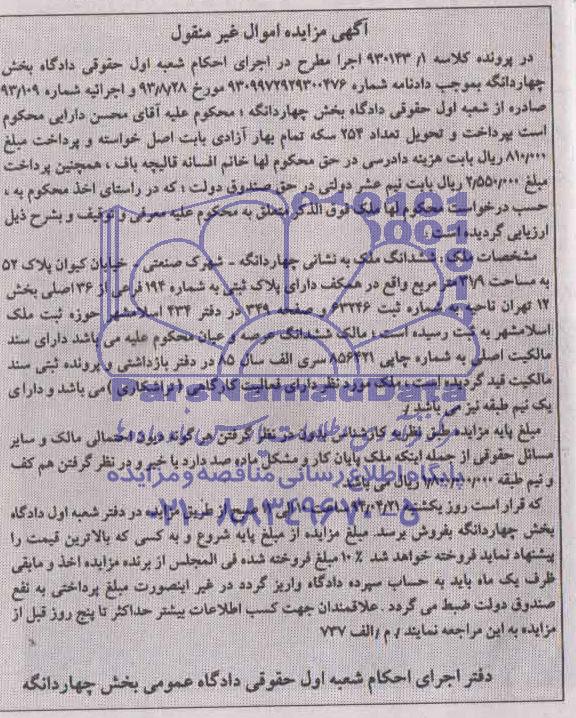 آگهی مزایده اموال غیر منقول
در پرونده کلاسه ۱/ ۹۳۰۱۴۳ اجرا مطرح در اجرای احکام شعبه اول حقوقی دادگاه بخش
چهاردانگه بموجب دادنامه شماره ۹۳۰۹۹۷۲۹۲۹۳۰۰۴۷۶ مورخ ۹۳/۸/۲۸ و اجرائیه شماره ۹۳/۱۰۹
صادره از شعبه اول حقوقی دادگاه بخش چهاردانگه ؛ محکوم علیه آقای محسن دارابی محکوم
است بپرداخت و تحویل تعداد ۲۵۴ سکه تمام بهار آزادی بابت اصل خواسته و پرداخت مبلغ
۸۱۰/۰۰۰ ریال بابت هزینه دادرسی در حق محکوم لها خانم افسانه قالیچه باف ، همچنین پرداخت
مبلغ ۲/۵۵۰/۰۰۰ ریال بابت نیم عشر دولتی در حق صندوق دولت ؛ که در راستای اخذ محکوم به ،
حسب درخواست محکوم لها ملک فوق الذکر متعلق به محکوم علیه معرفی و توقیف و بشرح ذیل
ارزیابی گردیده است .
مشخصات ملک : ششدانگ ملک به نشانی چهاردانگه - شهرک صنعتی - خیابان کیوان پلاک ۵۲
به مساحت ۳۱/۹ متر مربع واقع در همکف دارای پلاک ثبتی به شماره ۱۹۴ فرعی از ۳۶ اصلی بخش
۱۲ تهران ناحیه به شماره ثبت ۶۳۲۴۶ و صفحه ۳۴۹ در دفتر ۴۳۴ اسلامشهر حوزه ثبت ملک
اسلامشهر به ثبت رسیده است ؛ مالک ششدانگ عرصه و عیان محکوم علیه می باشد دارای سند
مالکیت اصلی به شماره چاپی ۸۵۶۴۲۱ سری الف سال ۸۵ در دفتر بازداشتی و پرونده ثبتی سند
مالکیت قید گردیده است ، ملک مورد نظر دارای فعالیت کارگاهی ( تراشکاری ) می باشد و دارای
یک نیم طبقه نیز می باشد .
مبلغ پایه مزایده طبق نظریه کارشناس بدون در نظر گرفتن هر گونه دیون احتمالی مالک و سایر
مسائل حقوقی از جمله اینکه ملک پایان کار و مشکل ماده صد دارد یا خیر و در نظر گرفتن هم کف
و نیم طبقه ریال می باشد
که قرار است روز یکشنبه ساعت الی صبح از طریق مزایده در دفتر شعبه اول دادگاه
بخش چهاردانگه بفروش برسد. مبلغ مزایده از مبلغ پایه شروع و به کسی که بالاترین قیمت را
پیشنهاد نماید فروخته خواهد شد ٪۱۰ مبلغ فروخته شده فی المجلس از برنده مزایده اخذ و مابقی
ظرف یک ماه باید به حساب سپرده دادگاه واریز گردد در غیر اینصورت مبلغ پرداختی به نفع
صندوق دولت ضبط می گردد . علاقمندان جهت کسب اطلاعات بیشتر حداکثر تا پنج روز قبل از
مزایده به این مراجعه نمایند /. م /الف ۷۳۷
دفتر اجرای احکام شعبه اول حقوقی دادگاه عمومی بخش چهاردانگه
ParsNamadData
پایگاه اطلاع رسانی مناقصه و مزایده
۰۲۱-۸۸۳۴۹۶۷۰-۵